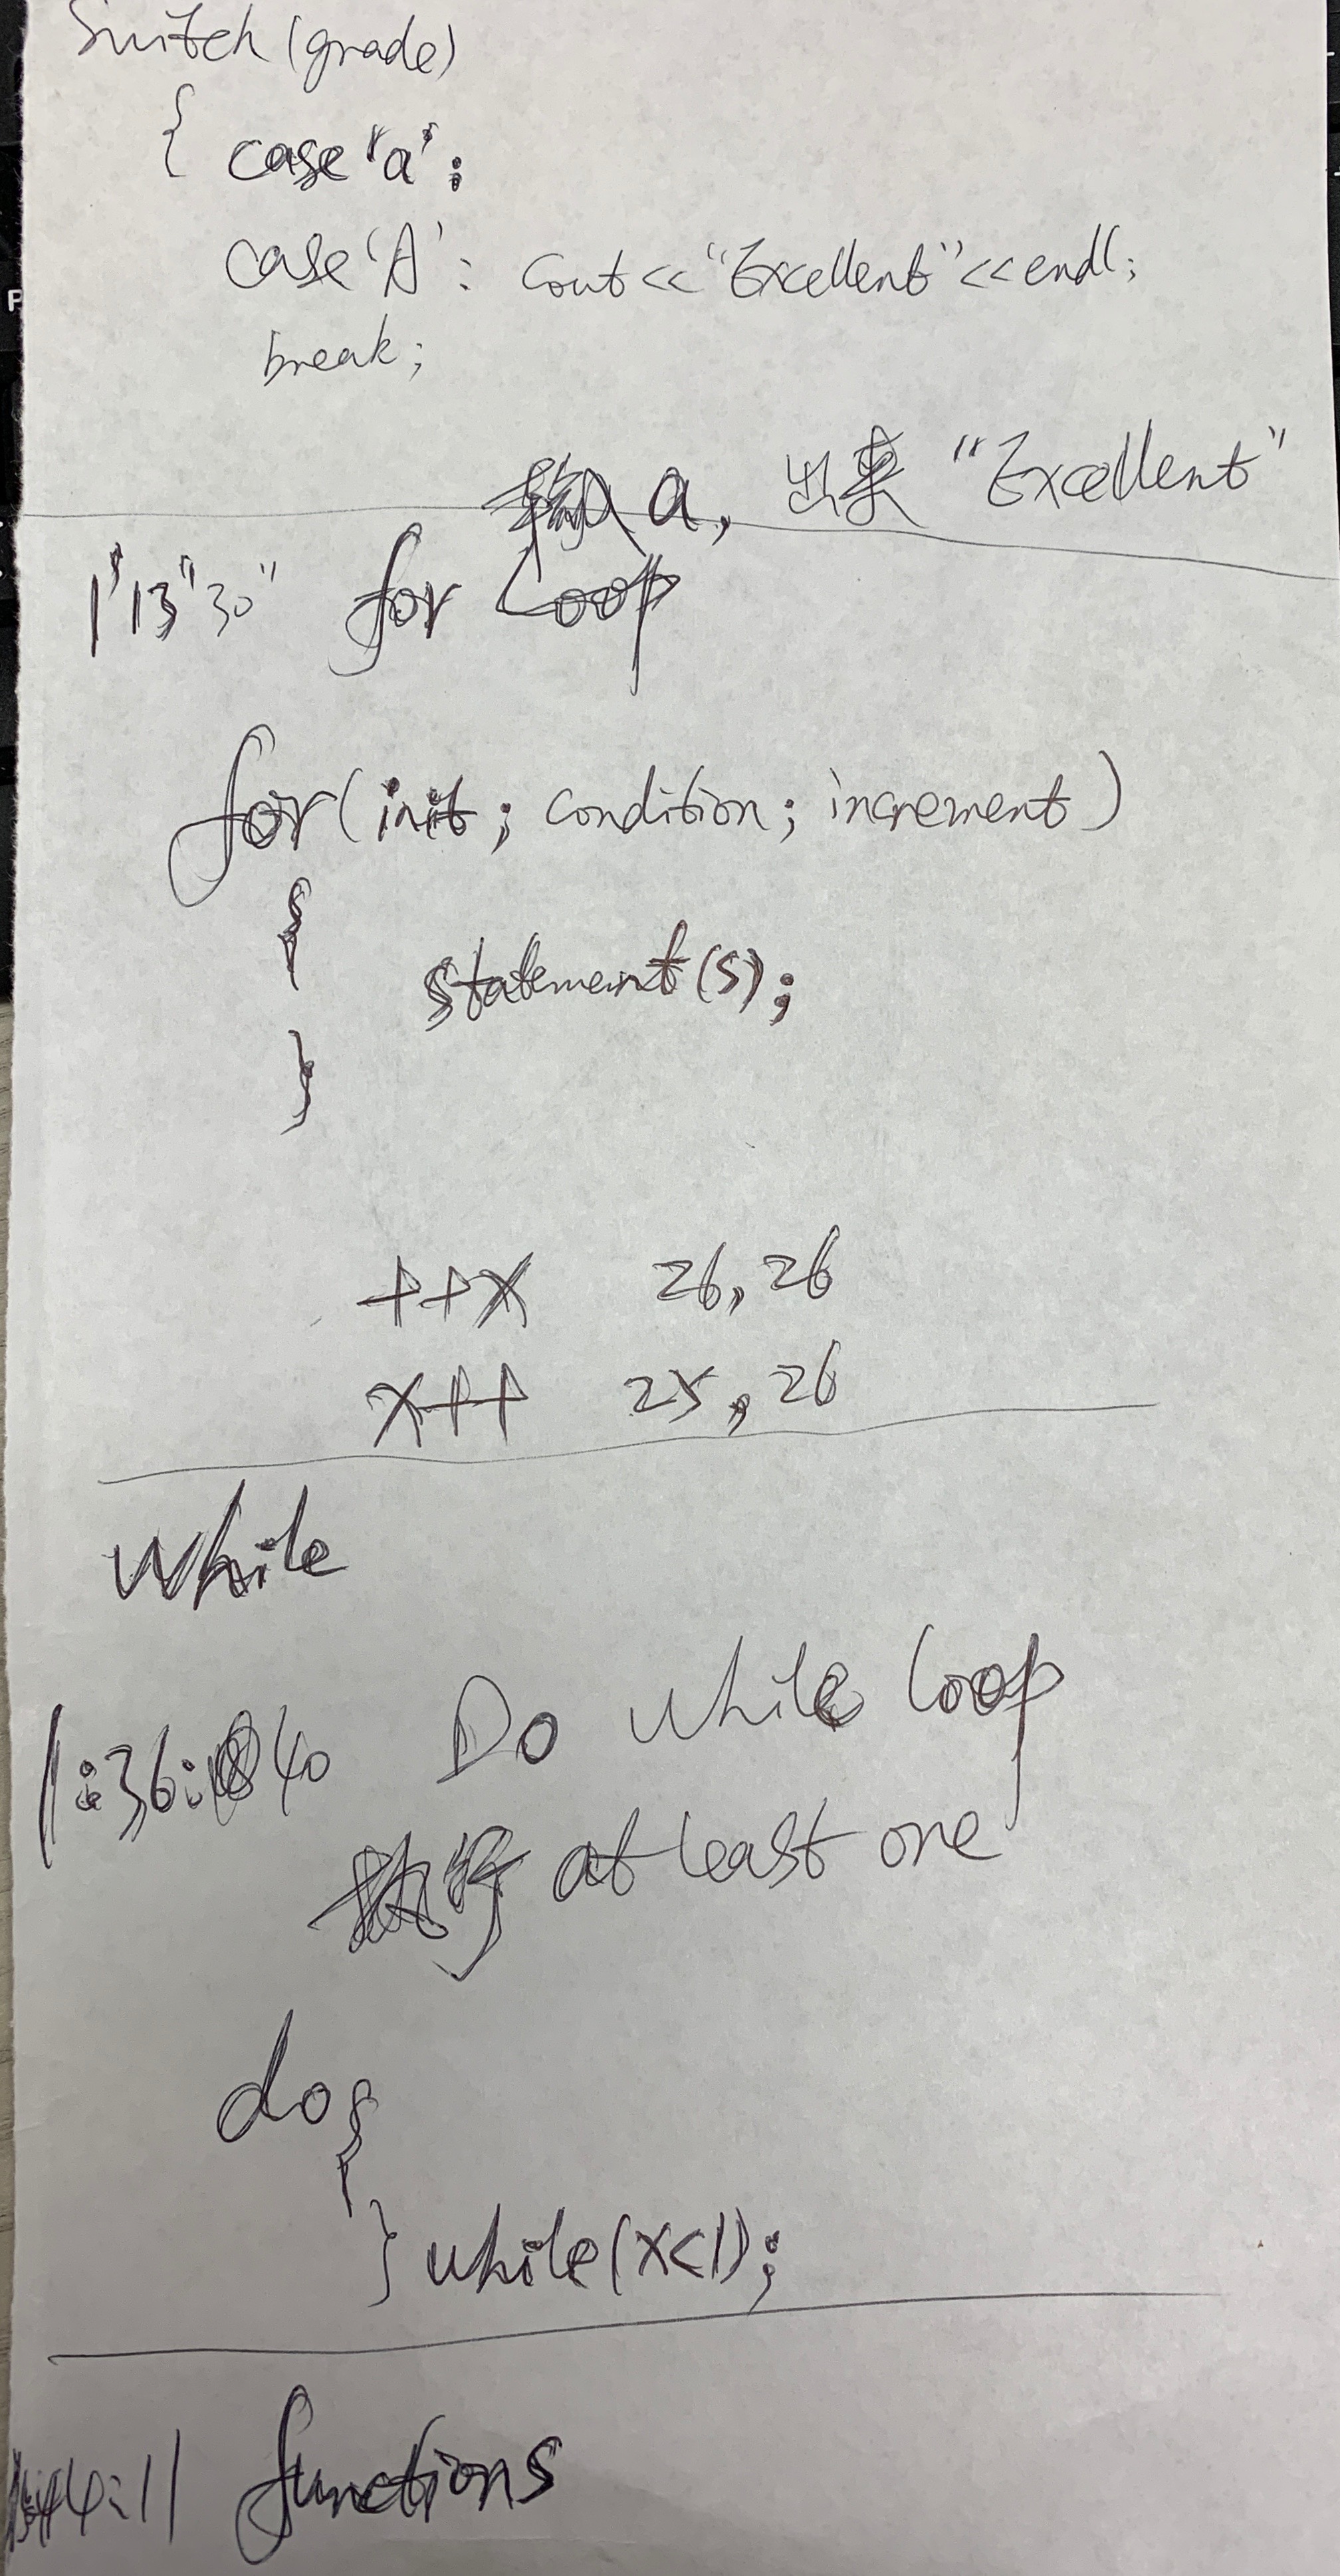 Switch (grade)
{ case 'a':
case 'A': cout << "Excellent" << endl;
break;
输入 a, 出来 "Excellent"
1'13"30" for Loop
for (init; condition; increment)
{
statement(s);
}
++x 26, 26
x++ 25, 26
while
1:36:40 Do while loop
执行 at least one
do {
} while (x<1);
functions